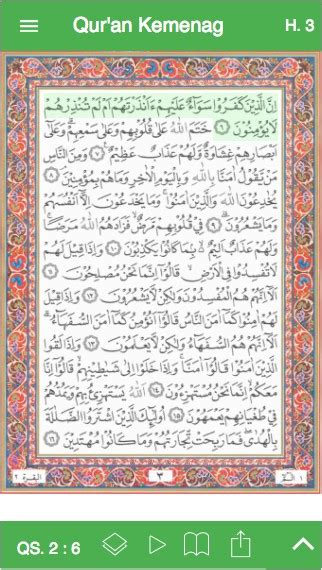 Qur'an Kemenag
H. 3
اِنَّ الَّذِيْنَ كَفَرُوْا سَوَاۤءٌ عَلَيْهِمْ ءَاَنْذَرْتَهُمْ اَمْ لَمْ تُنْذِرْهُمْ
لَا يُؤْمِنُوْنَ ۝٦ خَتَمَ اللّٰهُ عَلٰى قُلُوْبِهِمْ وَعَلٰى سَمْعِهِمْ ۗ وَعَلٰٓى
اَبْصَارِهِمْ غِشَاوَةٌ وَّلَهُمْ عَذَابٌ عَظِيْمٌ ۝٧ وَمِنَ النَّاسِ
مَنْ يَّقُوْلُ اٰمَنَّا بِاللّٰهِ وَبِالْيَوْمِ الْاٰخِرِ وَمَا هُمْ بِمُؤْمِنِيْنَ ۝٨
يُخٰدِعُوْنَ اللّٰهَ وَالَّذِيْنَ اٰمَنُوْا ۚ وَمَا يَخْدَعُوْنَ اِلَّآ اَنْفُسَهُمْ
وَمَا يَشْعُرُوْنَ ۝٩ فِيْ قُلُوْبِهِمْ مَّرَضٌ فَزَادَهُمُ اللّٰهُ مَرَضًا ۚ
وَلَهُمْ عَذَابٌ اَلِيْمٌ ۢ بِمَا كَانُوْا يَكْذِبُوْنَ ۝١٠ وَاِذَا قِيْلَ لَهُمْ
لَا تُفْسِدُوْا فِى الْاَرْضِ ۙ قَالُوْٓا اِنَّمَا نَحْنُ مُصْلِحُوْنَ ۝١١
اَلَآ اِنَّهُمْ هُمُ الْمُفْسِدُوْنَ وَلٰكِنْ لَّا يَشْعُرُوْنَ ۝١٢ وَاِذَا قِيْلَ
لَهُمْ اٰمِنُوْا كَمَآ اٰمَنَ النَّاسُ قَالُوْٓا اَنُؤْمِنُ كَمَآ اٰمَنَ السُّفَهَاۤءُ ۗ
اَلَآ اِنَّهُمْ هُمُ السُّفَهَاۤءُ وَلٰكِنْ لَّا يَعْلَمُوْنَ ۝١٣ وَاِذَا لَقُوا
الَّذِيْنَ اٰمَنُوْا قَالُوْٓا اٰمَنَّا ۚ وَاِذَا خَلَوْا اِلٰى شَيٰطِيْنِهِمْ ۙ قَالُوْٓا اِنَّا
مَعَكُمْ ۙ اِنَّمَا نَحْنُ مُسْتَهْزِءُوْنَ ۝١٤ اَللّٰهُ يَسْتَهْزِئُ بِهِمْ وَيَمُدُّهُمْ
فِيْ طُغْيَانِهِمْ يَعْمَهُوْنَ ۝١٥ اُولٰۤىِٕكَ الَّذِيْنَ اشْتَرَوُا الضَّلٰلَةَ
بِالْهُدٰىۖ فَمَا رَبِحَتْ تِّجَارَتُهُمْ وَمَا كَانُوْا مُهْتَدِيْنَ ۝١٦
البقرة ٢
٣
QS. 2 : 6